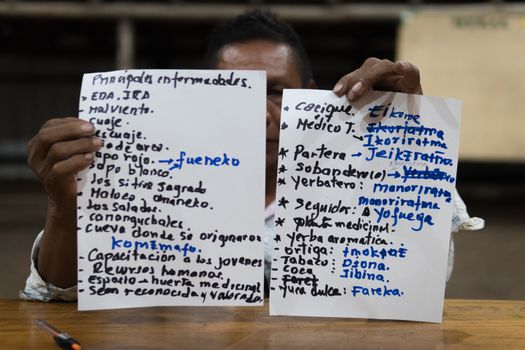 Principales enfermedades.
- EDA, IRA
- Malviento.
cuaje.
de arco.
sapo rojo. → fueneko
sapo blanco.
los sitios sagrado
Maloca ananeko.
los salados.
cananguchales.
- Cueva donde se originaron
Komimafo.
- Capacitación a los jóvenes
- Recursos humanos.
- Espacio → huerta medicinal
- Sean reconocida y valorados.
* Cacique: Eikome
* Medico T.
Ikoriratma
* Partera → Jeikiratma.
* Sobandero(a) →
* Yerbatero: manoriratma
manoriratma
* Seguidor. A Yofuega
* planta medicinal
* Yerba aromatica.
* Ortiga:
* Tabaco: Diona.
* Coca: Jibina.
* Yuca dulce: Fareka.